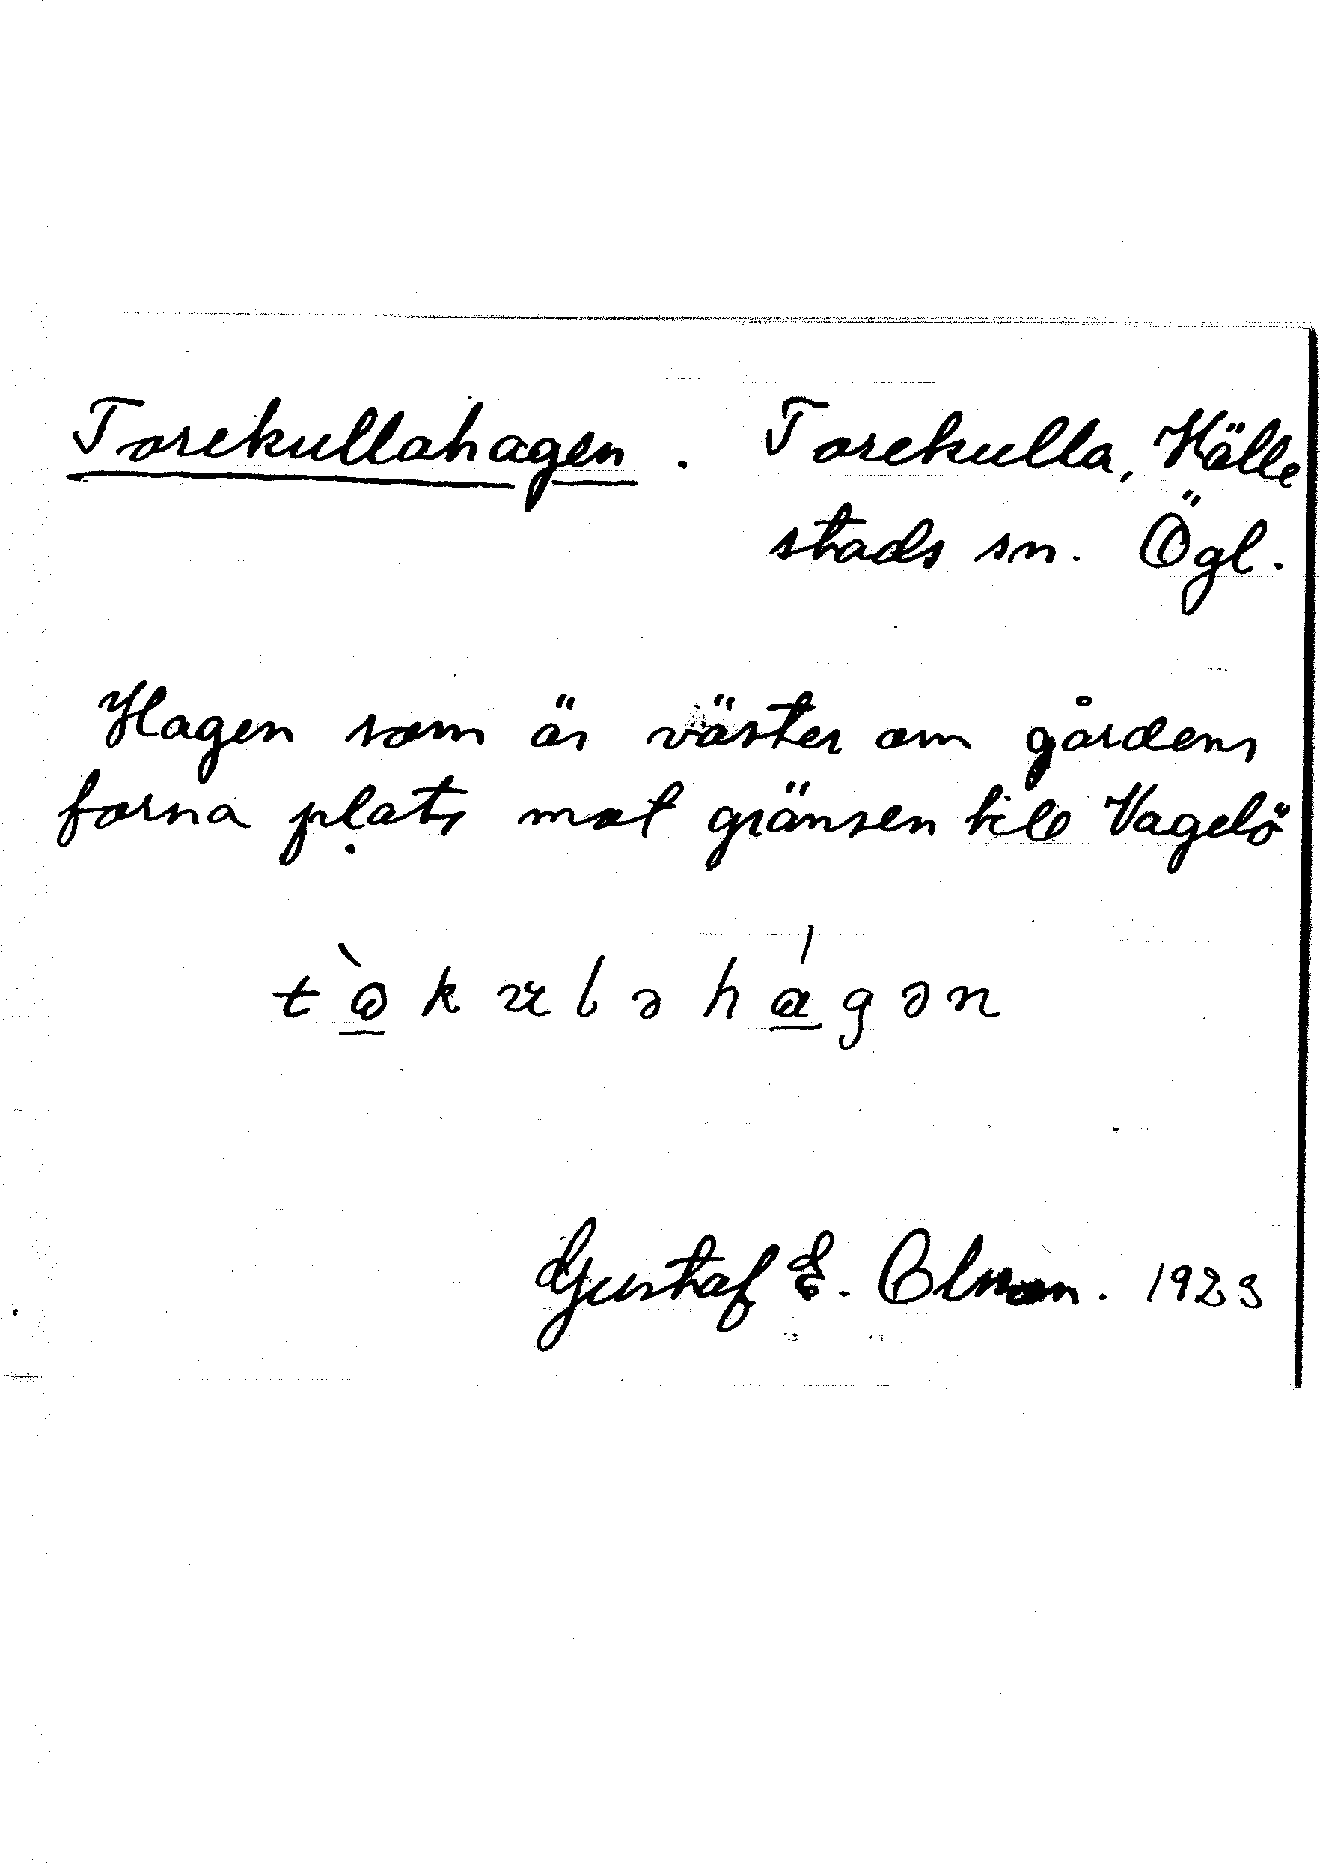 Torekullahagen. Torekulla, Hälle
stads sn. Ögl.
Hagen som är väster om gårdens
forna plats mot gränsen till Vagelö
Gustaf E. Olsson. 1923